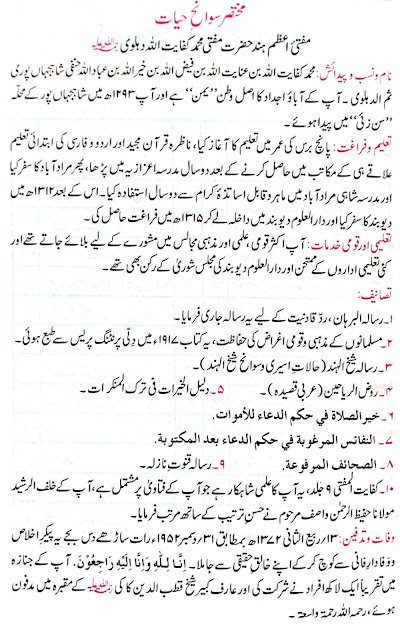 مختصر سوانح حیات
مفتیٔ اعظم ہند حضرت مفتی محمد کفایت اللہ دہلوی رحمۃ اللہ علیہ
نام و نسب و پیدائش: محمد کفایت اللہ بن عنایت اللہ بن فیض اللہ بن خیر اللہ بن عباد اللہ حنفی شاہجہاں پوری
ثم الدہلوی۔ آپ کے آباؤ اجداد کا اصل وطن ”یمن“ ہے اور آپ ۱۲۹۳ھ میں شاہجہاں پور کے محلّہ
”سن زئی“ میں پیدا ہوئے۔
تعلیم و فراغت: پانچ برس کی عمر میں تعلیم کا آغاز کیا، ناظرہ قرآن مجید اور اردو و فارسی کی ابتدائی تعلیم
علاقے ہی کے مکاتب میں حاصل کرنے کے بعد دو سال مدرسہ اعزازیہ میں پڑھا، پھر مرادآباد کا سفر کیا
اور مدرسہ شاہی مرادآباد میں ماہر و قابل اساتذۂ کرام سے دو سال استفادہ کیا۔ اس کے بعد ۱۳۱۲ھ میں
دیوبند کا سفر کیا اور دارالعلوم دیوبند میں داخلہ لے کر ۱۳۱۵ھ میں فراغت حاصل کی۔
تعلیمی اور قومی خدمات: آپ اکثر قومی، علمی اور مذہبی مجالس میں مشورے کے لیے بلائے جاتے تھے اور
کئی تعلیمی اداروں کے ممتحن اور دارالعلوم دیوبند کی مجلس شوریٰ کے رکن بھی تھے۔
تصانیف:
۱۔ رسالہ البرہان، ردِّ قادنیت کے لیے یہ رسالہ جاری فرمایا۔
۲۔ مسلمانوں کے مذہبی و قومی اغراض کی حفاظت، یہ کتاب ۱۹۱۷ء میں دِلّی پرنٹنگ پریس سے طبع ہوئی۔
۳۔ رسالہ شیخ الہند (حالات اسیری و سوانح شیخ الہند)۔
۴۔ روض الریاحین (عربی قصیدہ)۔ ۵۔ دلیل الخیرات فی ترک المنکرات۔
۶۔ خیر الصلاة في حكم الدعاء للأموات.
۷۔ النفائس المرغوبة في حكم الدعاء بعد المكتوبة.
۸۔ الصحائف المرفوعة. ۹۔ رسالہ قنوتِ نازلہ۔
۱۰۔ کفایت المفتی ۹ جلد، یہ آپ کا علمی شاہکار ہے جو آپ کے فتاویٰ پر مشتمل ہے، آپ کے خلف الرشید
مولانا حفیظ الرحمٰن واصف مرحوم نے حسنِ ترتیب کے ساتھ مرتب فرمایا۔
وفات و تدفین: ۱۳/ربیع الثانی ۱۳۷۲ھ بمطابق ۳۱/دسمبر ۱۹۵۲ء رات ساڑھے دس بجے یہ پیکرِ اخلاص
و وفا دارِ فانی سے کوچ کر کے اپنے خالقِ حقیقی سے جا ملا۔ إِنَّا لِلّٰهِ وَإِنَّا إِلَيْهِ رَاجِعُوْنَ. آپ کے جنازہ
میں تقریباً ایک لاکھ افراد نے شرکت کی اور عارفِ کبیر شیخ قطب الدین کاکی رحمۃ اللہ علیہ کے مقبرہ میں مدفون
ہوئے، رحمہ اللہ رحمۃ واسعۃ۔